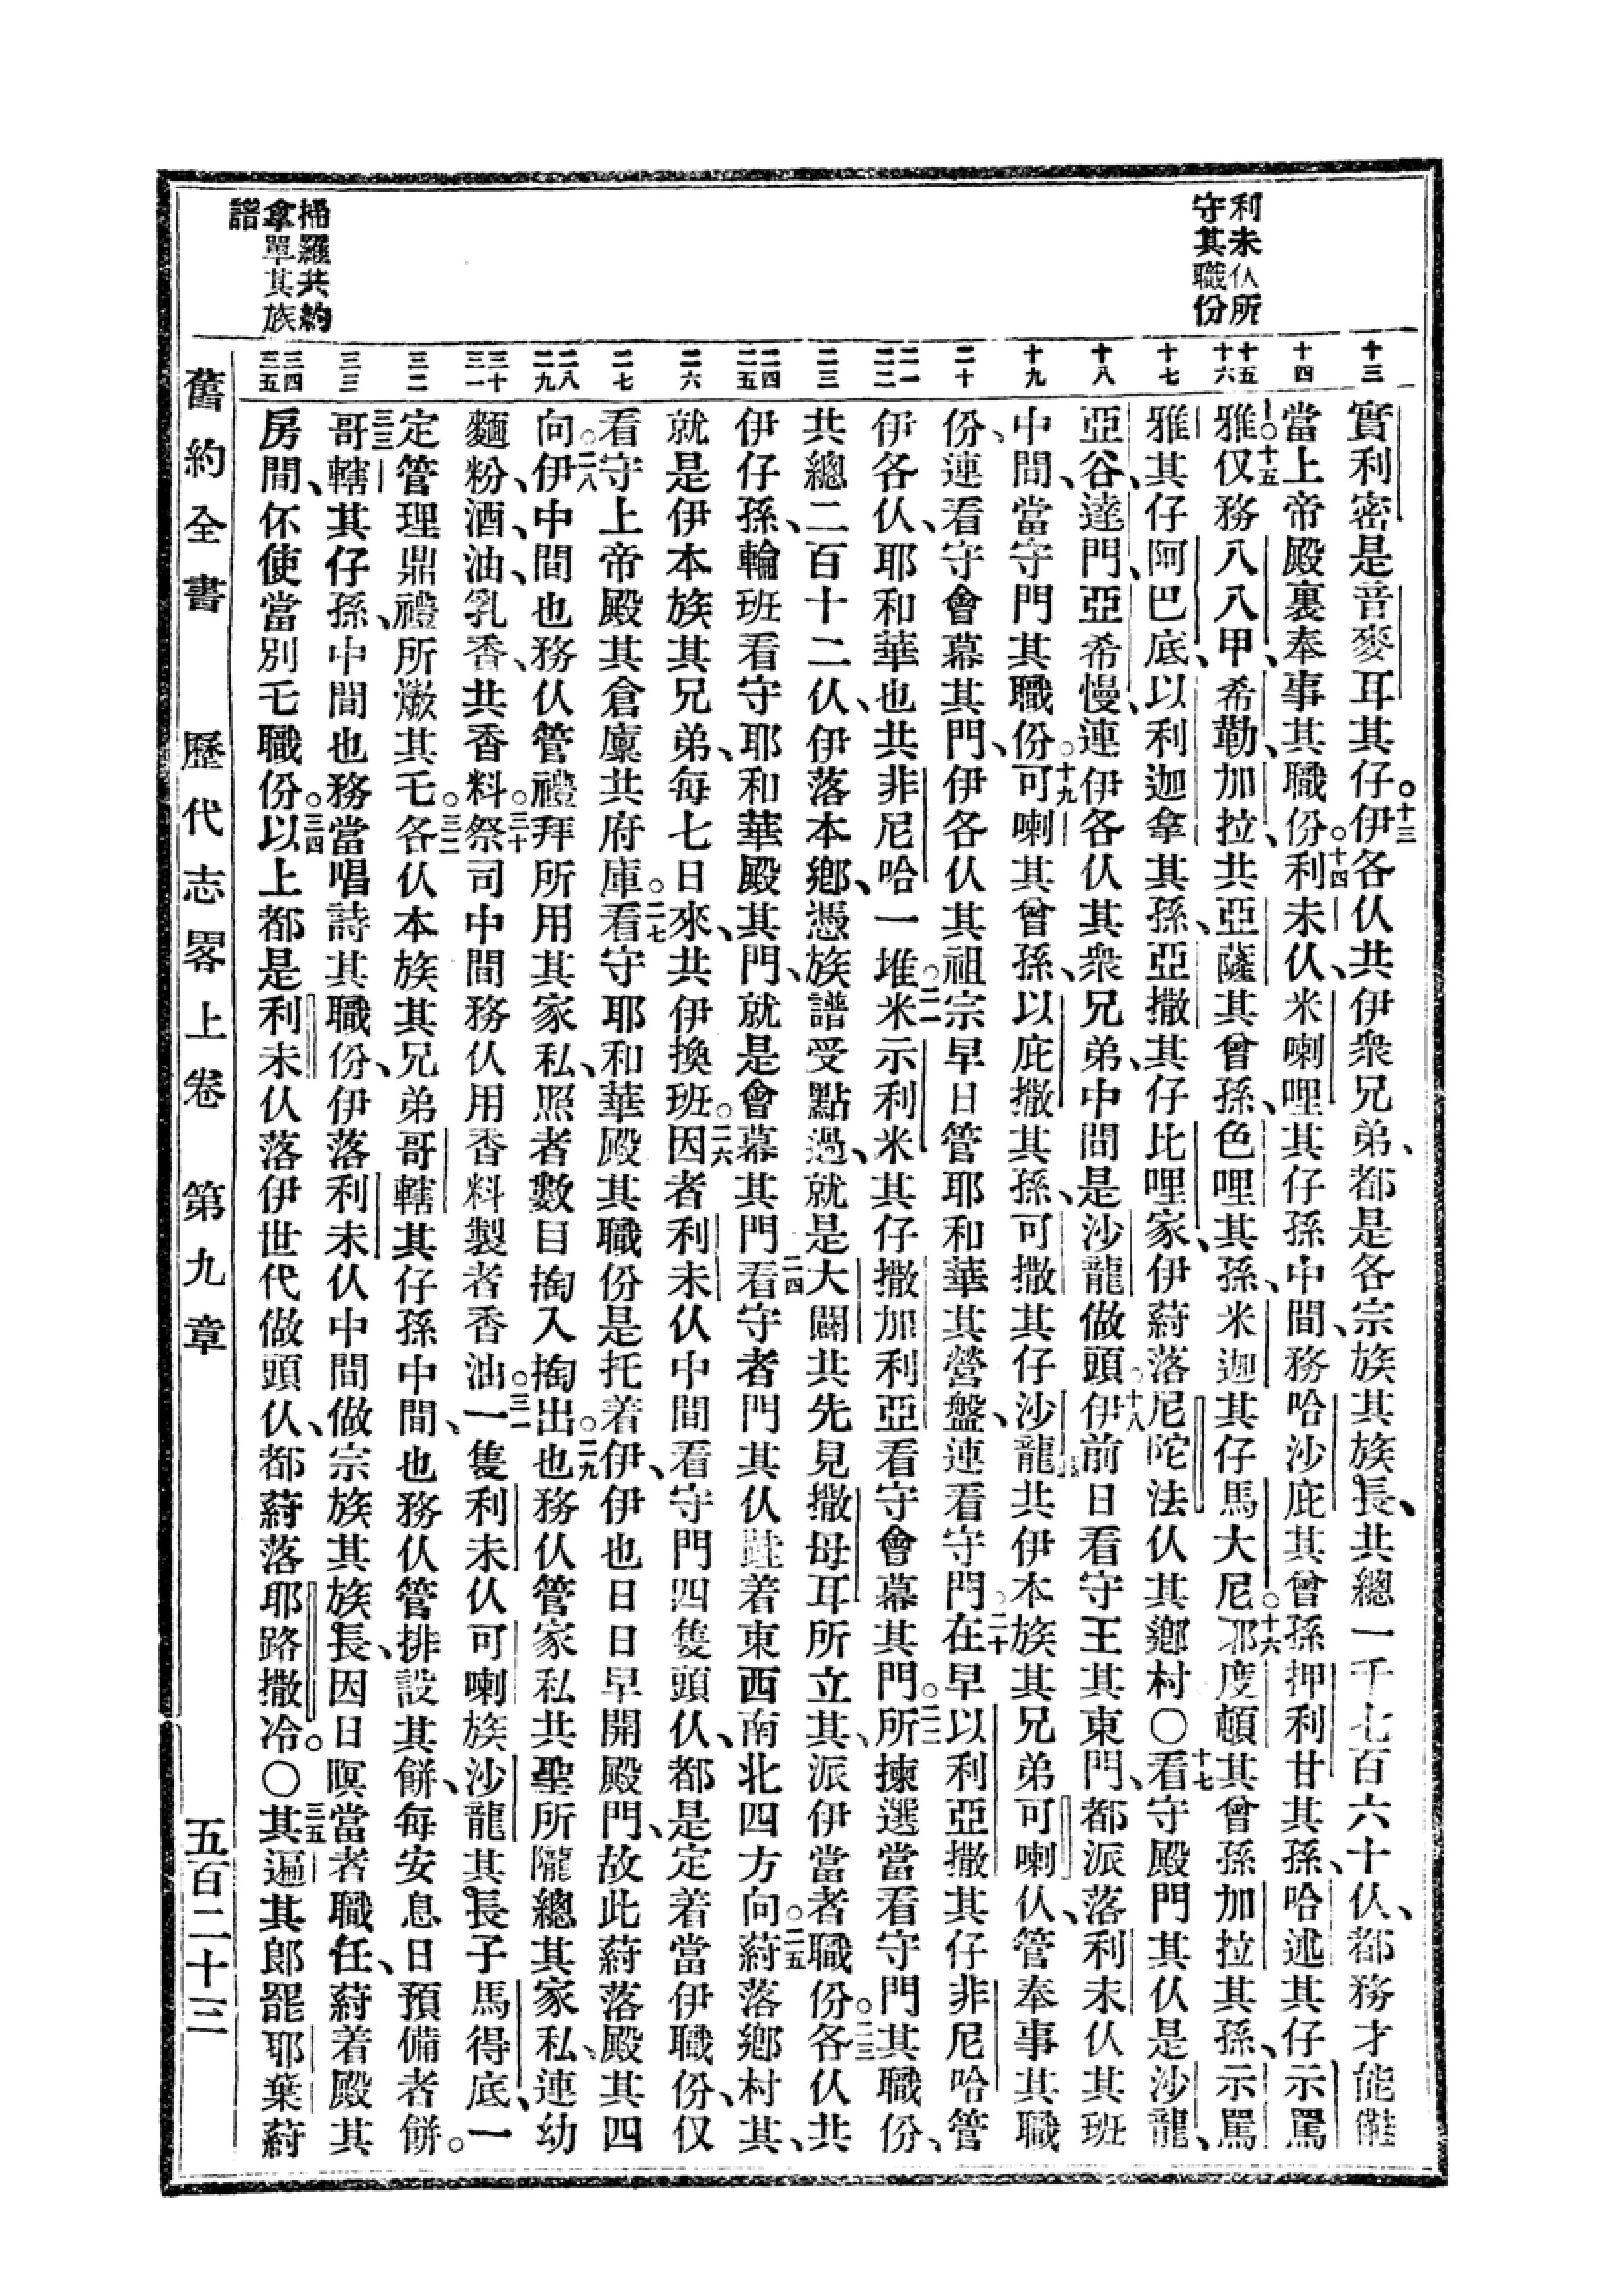 利未仫所
守其職份
掃羅共約
拿單其族
譜
十三
十四
十五
十六
十七
十八
十九
二十
二一
二二
二三
二四
二五
二六
二七
二八
二九
三十
三一
三二
三三
三四
三五
實利密是音麥耳其仔。十三伊各仫共伊衆兄弟、都是各宗族其族長、共總一千七百六十仫、都務才能
當上帝殿裏奉事其職份。十四利未仫、米喇哩其仔孫中間、務哈沙庇其曾孫押利甘其孫、哈述其仔示罵
雅。十五仅務八八甲、希勒、加拉、共亞薩其曾孫、色哩其孫、米迦其仔馬大尼。十六邪度頓其曾孫加拉其孫、示罵
雅其仔阿巴底、以利迦拿其孫、亞撒其仔比哩家、伊蒔落尼陀法仫其鄉村〇十七看守殿門其仫是沙龍、
亞谷、達門、亞希慢、連伊各仫其衆兄弟、中間是沙龍做頭。十八伊前日看守王其東門、都派落利未仫其班
中間、當守門其職份。十九可喇其曾孫、以庇撒其孫、可撒其仔沙龍、共伊本族其兄弟可喇仫、管奉事其職
份、連看守會幕其門、伊各仫其祖宗早日管耶和華其營盤、連看守門。二十在早以利亞撒其仔非尼哈管
伊各仫、耶和華也共非尼哈一堆。二一米示利米其仔撒加利亞看守會幕其門。二二所揀選當看守門其職份、
共總二百十二仫、伊落本鄉、憑族譜受點過、就是大闢共先見撒母耳所立其、派伊當者職份。二三各仫共
伊仔孫、輪班看守耶和華殿其門、就是會幕其門。二四看守者門其仫蹱着東西南北四方向。二五蒔落鄉村其、
就是伊本族其兄弟、每七日來、共伊換班。二六因者利未仫中間看守門四隻頭仫、都是定着當伊職份、仅
看守上帝殿其倉廩共府庫。二七看守耶和華殿其職份是托着伊、伊也日日早開殿門、故此蒔落殿其四
向。二八伊中間也務仫管禮拜所用其家私、照者數目掏入掏出。二九也務仫管家私共聖所隴總其家私、連幼
麵粉、酒、油、乳香、共香料。三十祭司中間務仫用香料製者香油。三一一隻利未仫可喇族沙龍其長子馬得底、一
定管理鼎禮所㷮其乇。三二各仫本族其兄弟哥轄其仔孫中間、也務仫管排設其餅、每安息日預備者餅。
三三哥轄其仔孫、中間也務當唱詩其職份、伊落利未仫中間做宗族其族長、因日暝當者職任、蒔着殿其
房間、伓使當別乇職份。三四以上都是利未仫落伊世代做頭仫、都蒔落耶路撒冷。〇三五其遍其郎罷耶葉蒔
舊約全書 歷代志畧上卷 第九章 五百二十三